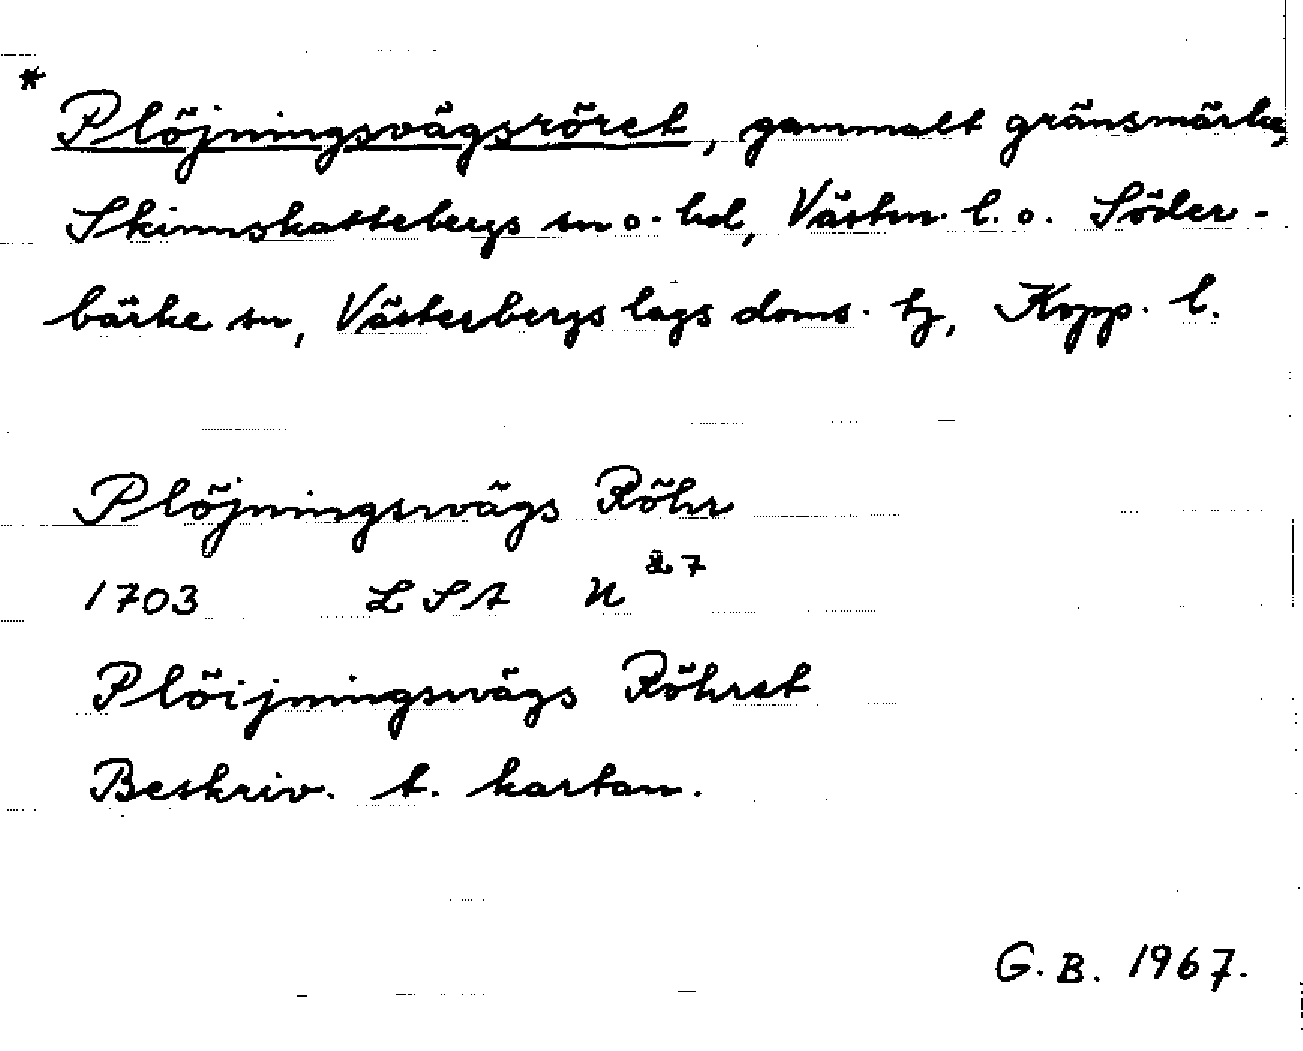 * Plöjningsvägsröret, gammalt gränsmärke,
Skinnskattebergs sn o. hd, Västm. l. o. Söder-
bärke sn, Västerbergslags doms. tg, Kopp. l.
Plöjningswägs Röhr
1703 LSA U 27
Plöijningswägs Röhret
Beskriv. t. kartan.
G. B. 1967.